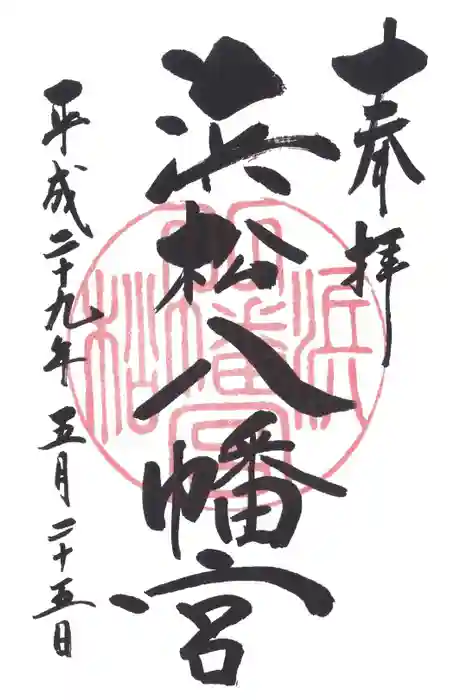 奉拝
浜松八幡宮
平成二十九年 五月二十五日
浜松八幡宮